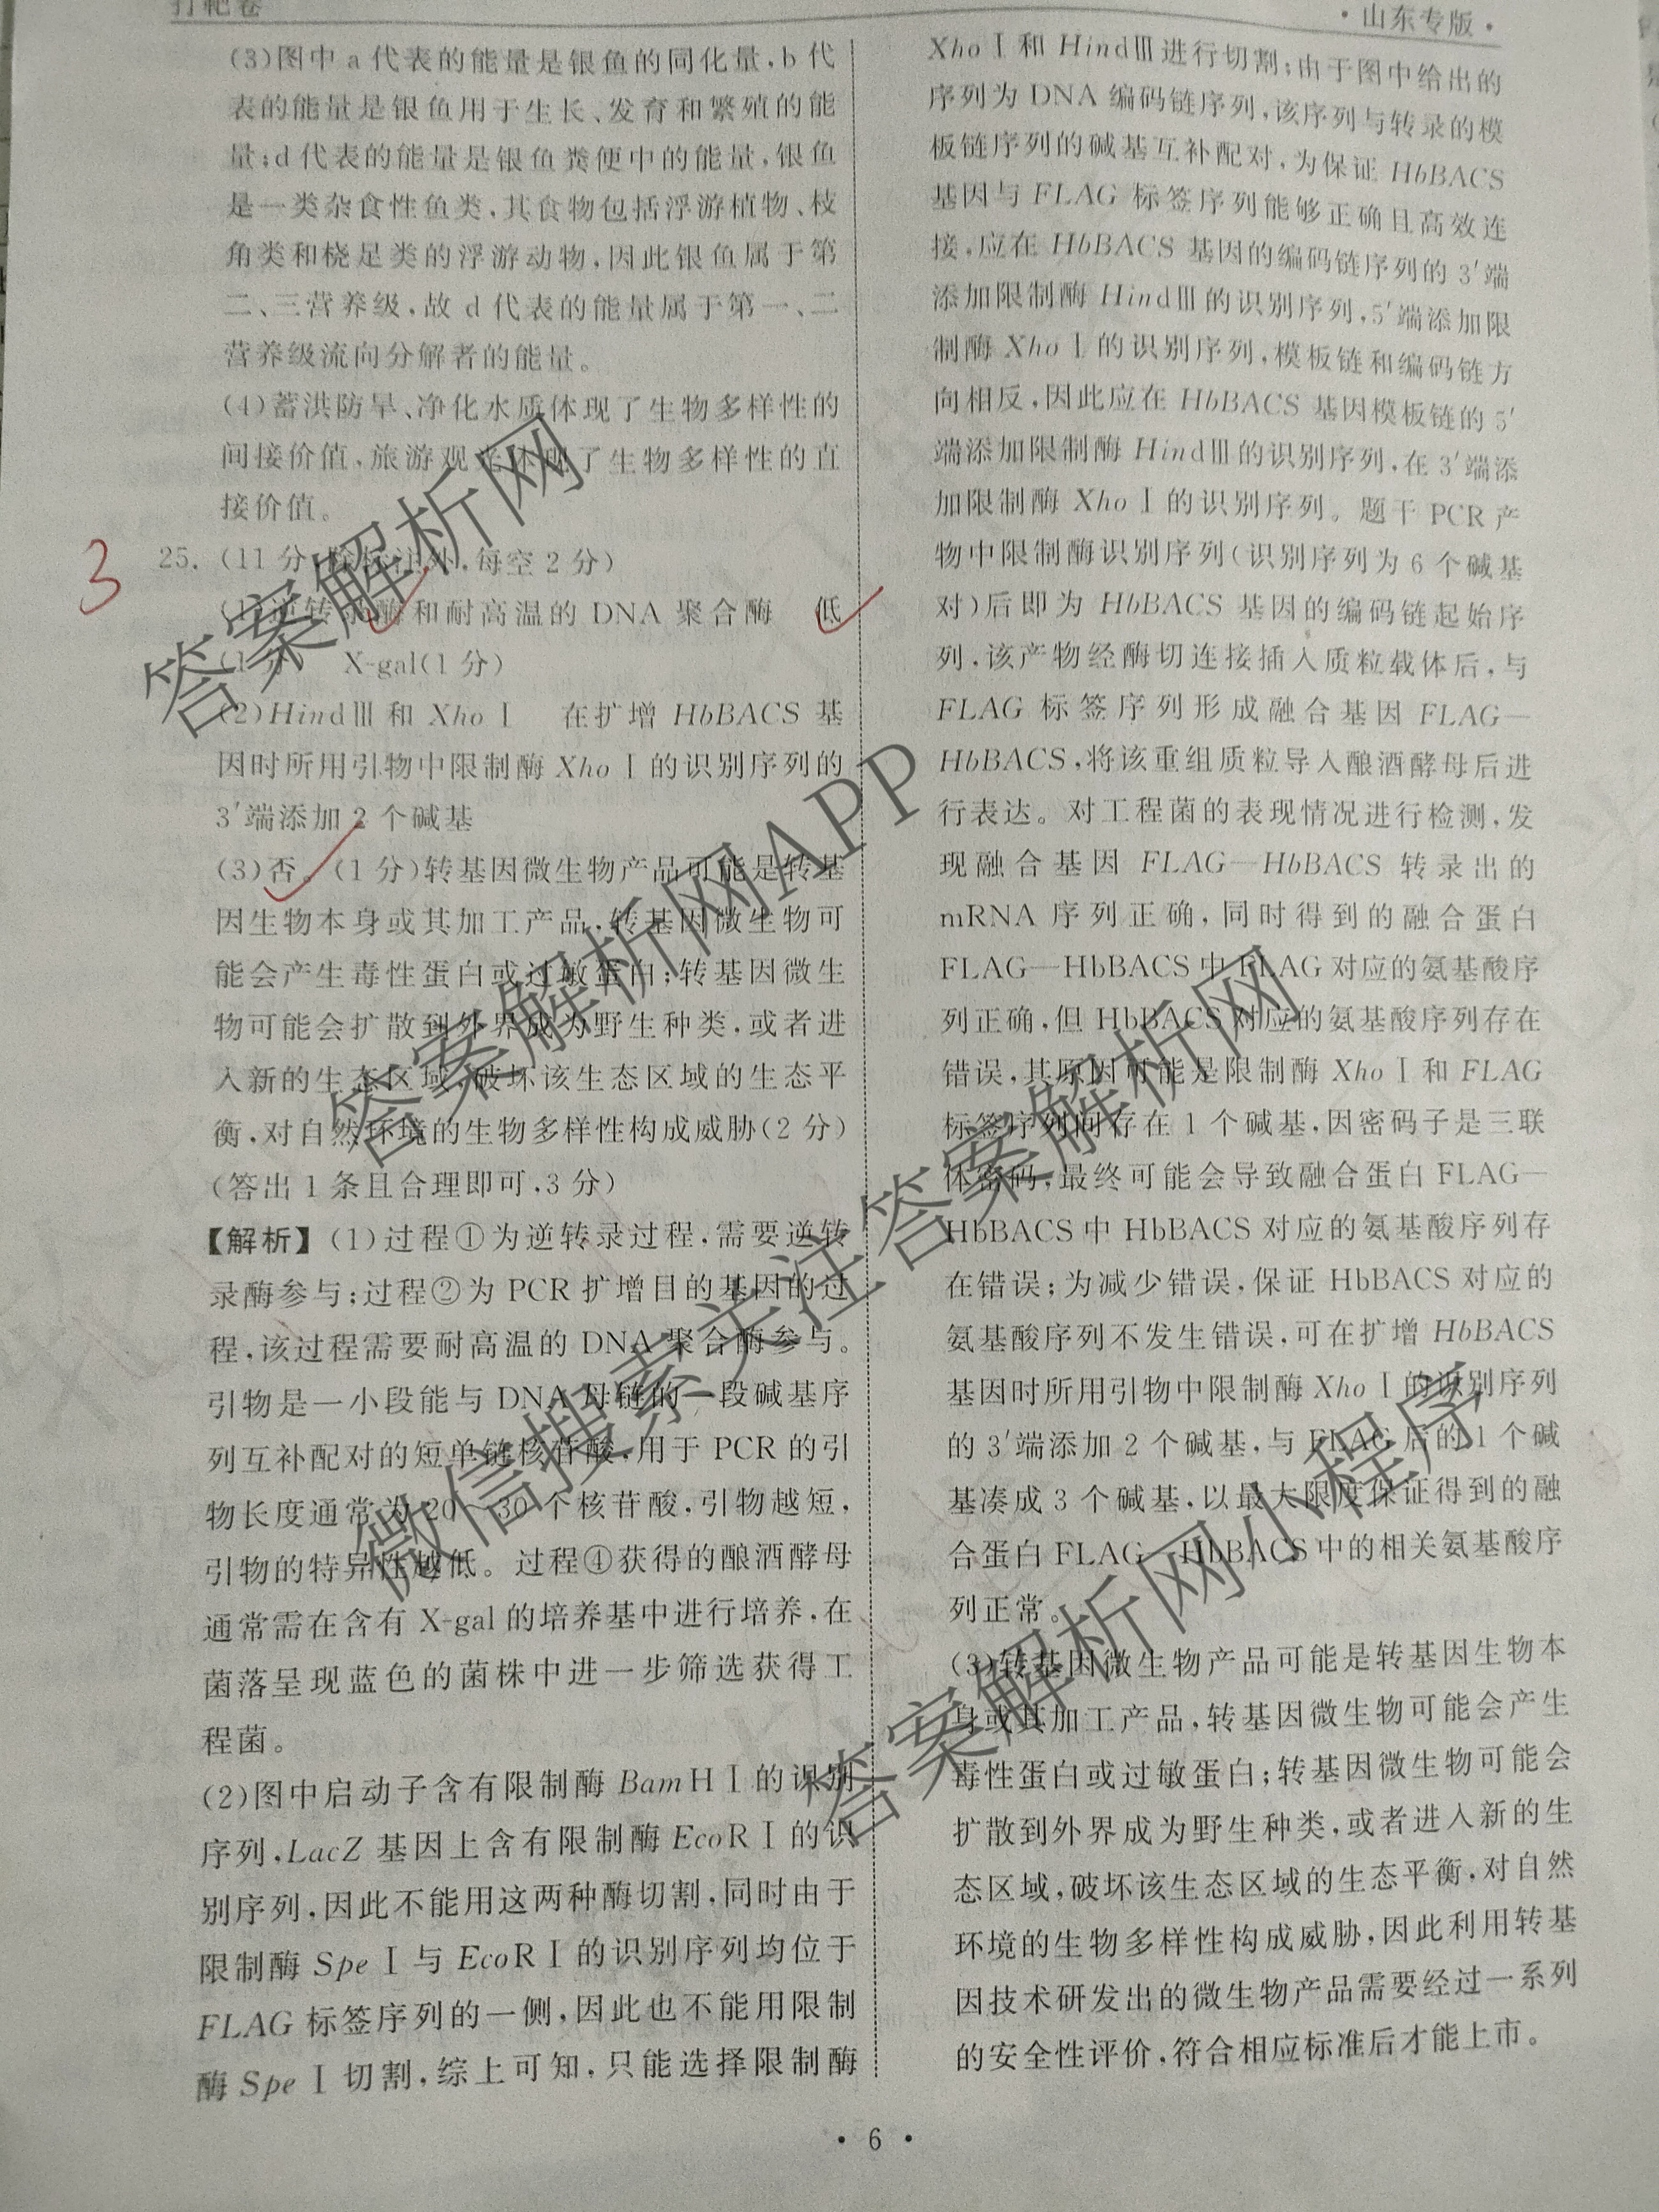 打靶卷
·山东专版·
(3)图中 a 代表的能量是银鱼的同化量,b 代
表的能量是银鱼用于生长、发育和繁殖的能
量;d 代表的能量是银鱼粪便中的能量,银鱼
是一类杂食性鱼类,其食物包括浮游植物、枝
角类和桡足类的浮游动物,因此银鱼属于第
二、三营养级,故 d 代表的能量属于第一、二
营养级流向分解者的能量。
(4)蓄洪防旱、净化水质体现了生物多样性的
间接价值,旅游观光体现了生物多样性的直
接价值。
3
25. (11 分,除标注外,每空 2 分)
(1)逆转录酶和耐高温的 DNA 聚合酶 低
(1 分) X-gal(1 分)
(2)HindⅢ和 XhoⅠ 在扩增 HbBACS 基
因时所用引物中限制酶 XhoⅠ的识别序列的
3′端添加 2 个碱基
(3)否。(1 分)转基因微生物产品可能是转基
因生物本身或其加工产品,转基因微生物可
能会产生毒性蛋白或过敏蛋白;转基因微生
物可能会扩散到外界成为野生种类,或者进
入新的生态区域,破坏该生态区域的生态平
衡,对自然环境的生物多样性构成威胁(2 分)
(答出 1 条且合理即可,3 分)
【解析】(1)过程①为逆转录过程,需要逆转
录酶参与;过程②为 PCR 扩增目的基因的过
程,该过程需要耐高温的 DNA 聚合酶参与。
引物是一小段能与 DNA 母链的一段碱基序
列互补配对的短单链核苷酸,用于 PCR 的引
物长度通常为 20～30 个核苷酸,引物越短,
引物的特异性越低。过程④获得的酿酒酵母
通常需在含有 X-gal 的培养基中进行培养,在
菌落呈现蓝色的菌株中进一步筛选获得工
程菌。
(2)图中启动子含有限制酶 BamHⅠ的识别
序列,LacZ 基因上含有限制酶 EcoRⅠ的识
别序列,因此不能用这两种酶切割,同时由于
限制酶 SpeⅠ与 EcoRⅠ的识别序列均位于
FLAG 标签序列的一侧,因此也不能用限制
酶 SpeⅠ切割,综上可知,只能选择限制酶
XhoⅠ和 HindⅢ进行切割;由于图中给出的
序列为 DNA 编码链序列,该序列与转录的模
板链序列的碱基互补配对,为保证 HbBACS
基因与 FLAG 标签序列能够正确且高效连
接,应在 HbBACS 基因的编码链序列的 3′端
添加限制酶 HindⅢ的识别序列,5′端添加限
制酶 XhoⅠ的识别序列,模板链和编码链方
向相反,因此应在 HbBACS 基因模板链的 5′
端添加限制酶 HindⅢ的识别序列,在 3′端添
加限制酶 XhoⅠ的识别序列。题干 PCR 产
物中限制酶识别序列(识别序列为 6 个碱基
对)后即为 HbBACS 基因的编码链起始序
列,该产物经酶切连接插入质粒载体后,与
FLAG 标签序列形成融合基因 FLAG—
HbBACS,将该重组质粒导入酿酒酵母后进
行表达。对工程菌的表现情况进行检测,发
现融合基因 FLAG—HbBACS 转录出的
mRNA 序列正确,同时得到的融合蛋白
FLAG—HbBACS 中 FLAG 对应的氨基酸序
列正确,但 HbBACS 对应的氨基酸序列存在
错误,其原因可能是限制酶 XhoⅠ和 FLAG
标签序列间存在 1 个碱基,因密码子是三联
体密码,最终可能会导致融合蛋白 FLAG—
HbBACS 中 HbBACS 对应的氨基酸序列存
在错误;为减少错误,保证 HbBACS 对应的
氨基酸序列不发生错误,可在扩增 HbBACS
基因时所用引物中限制酶 XhoⅠ的识别序列
的 3′端添加 2 个碱基,与 FLAG 后的 1 个碱
基凑成 3 个碱基,以最大限度保证得到的融
合蛋白 FLAG—HbBACS 中的相关氨基酸序
列正常。
(3)转基因微生物产品可能是转基因生物本
身或其加工产品,转基因微生物可能会产生
毒性蛋白或过敏蛋白;转基因微生物可能会
扩散到外界成为野生种类,或者进入新的生
态区域,破坏该生态区域的生态平衡,对自然
环境的生物多样性构成威胁,因此利用转基
因技术研发出的微生物产品需要经过一系列
的安全性评价,符合相应标准后才能上市。
· 6 ·
答案解析网
答案解析网APP
微信搜索关注答案解析网
答案解析网小程序